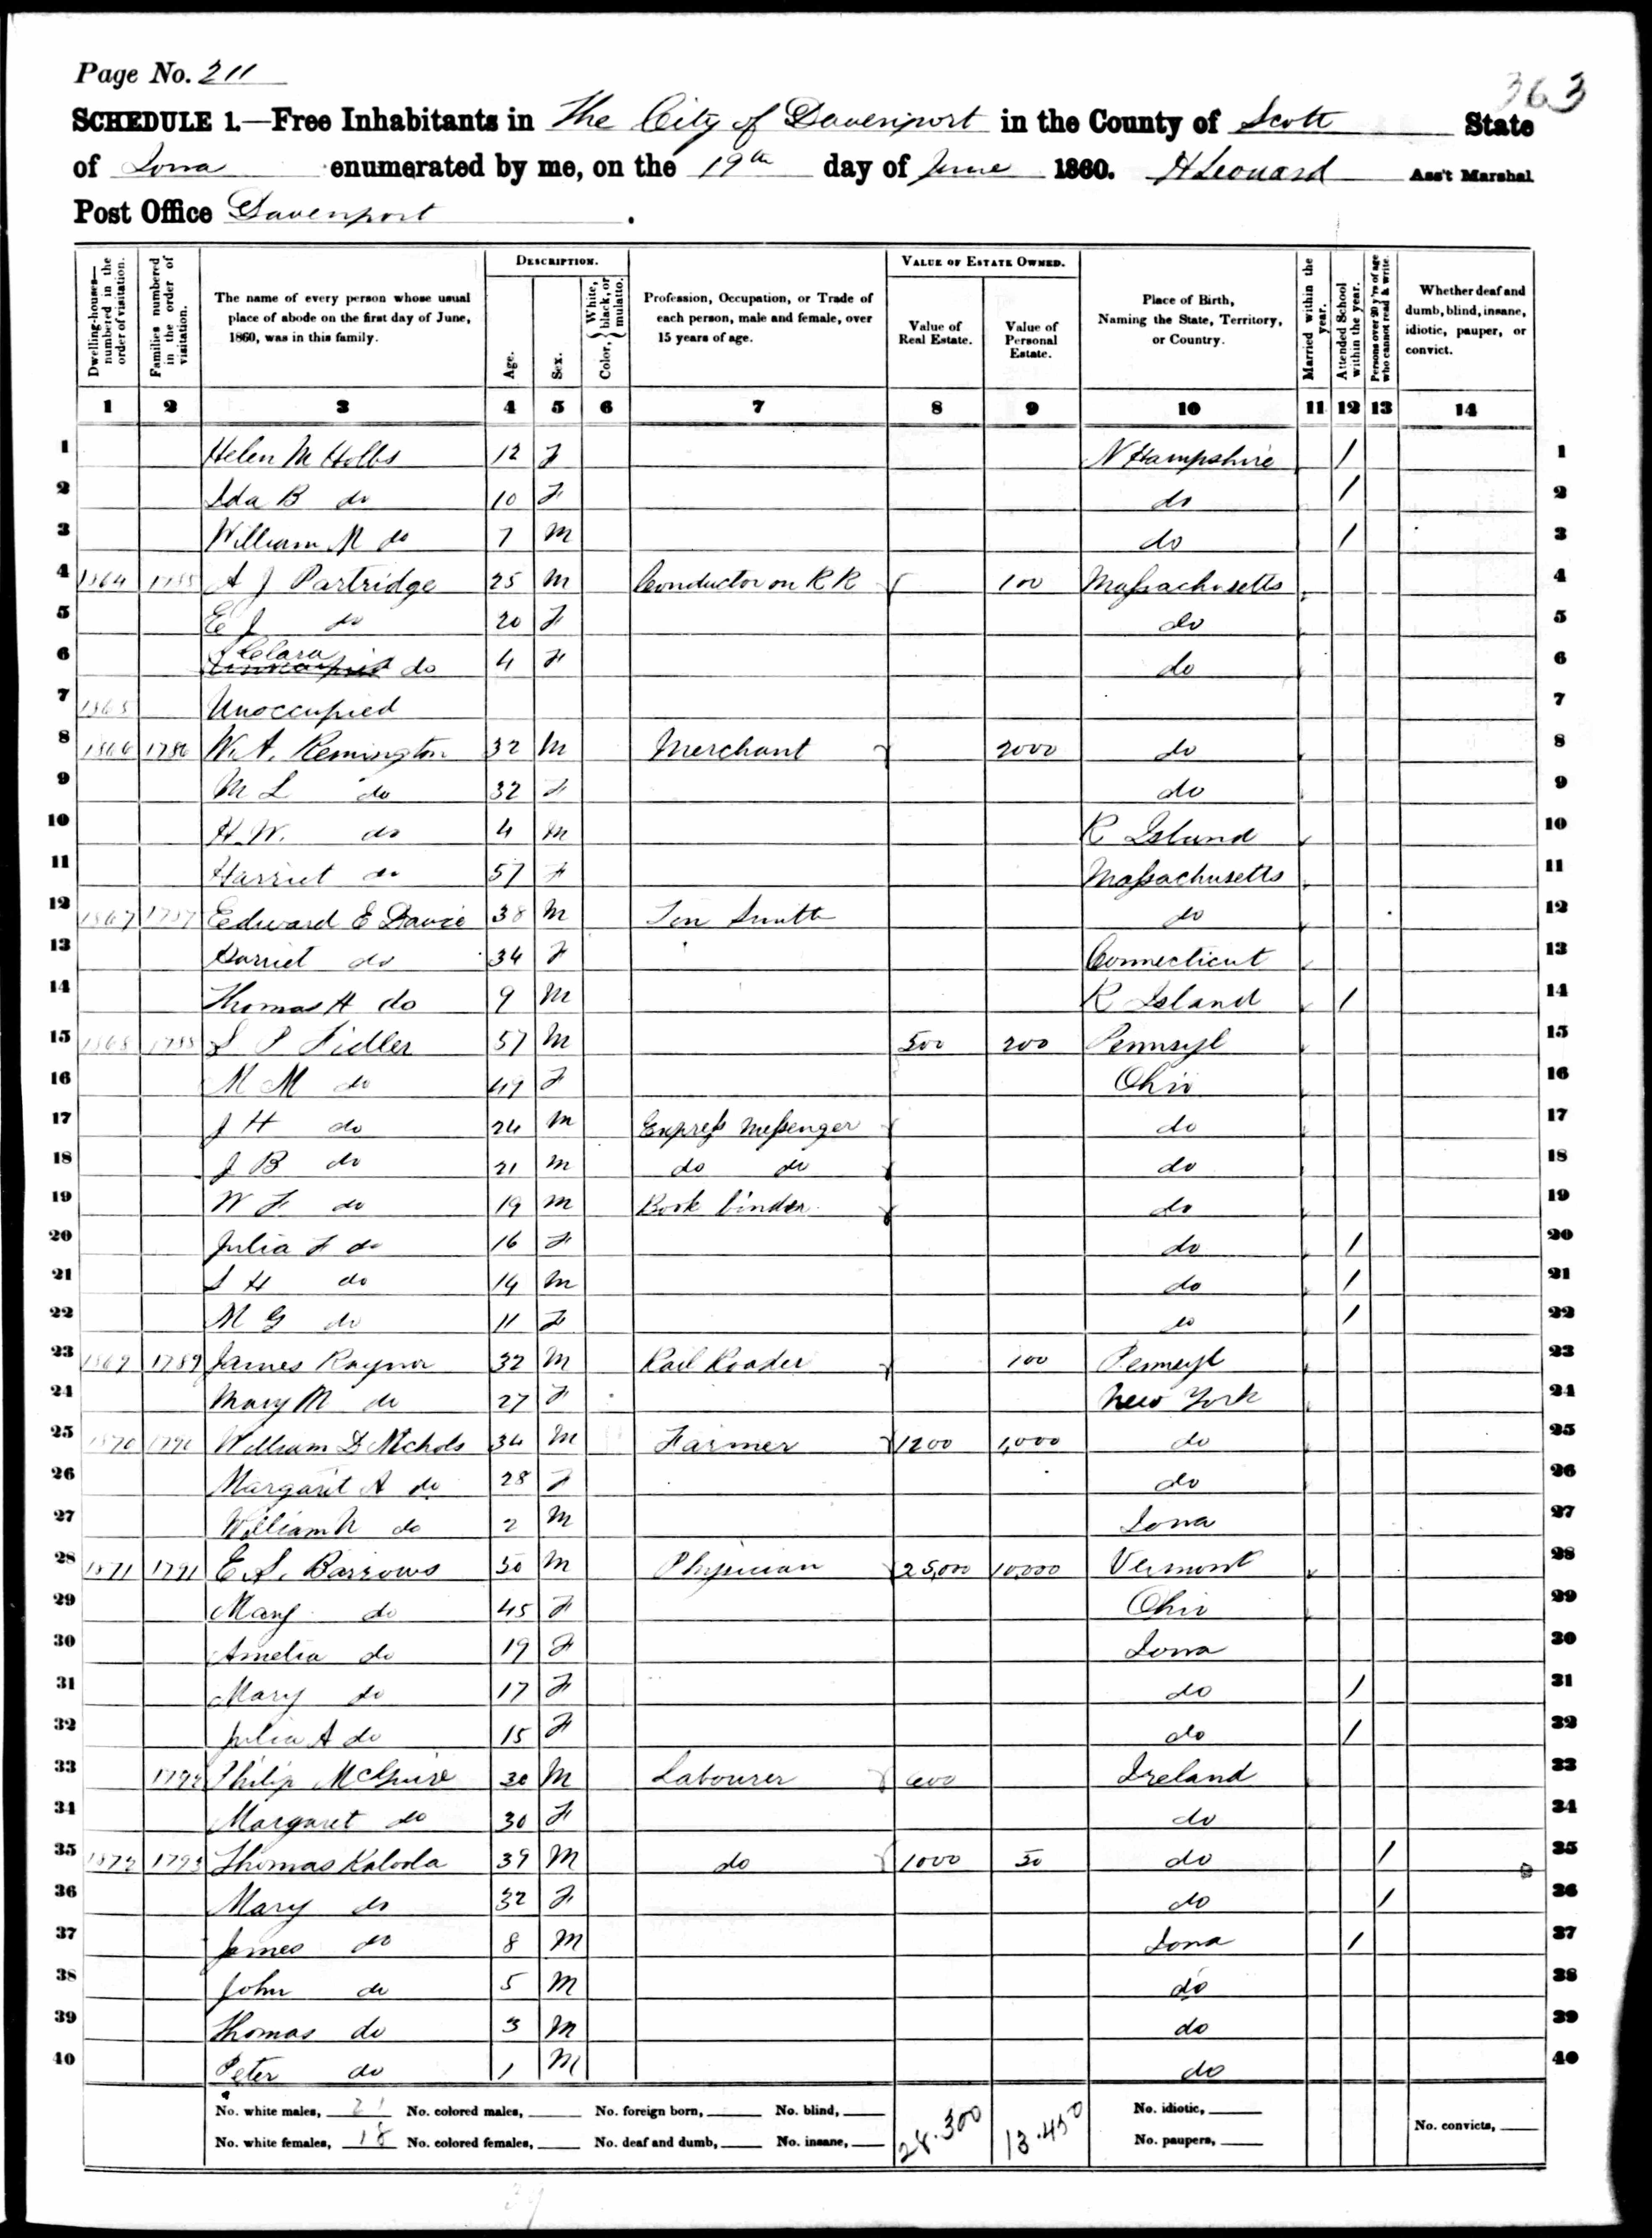 Page No. 211
363
SCHEDULE 1.—Free Inhabitants in The City of Davenport in the County of Scott State
of Iowa enumerated by me, on the 19th day of June 1860. H Leonard Ass't Marshal
Post Office Davenport.
Dwelling-houses—numbered in the order of visitation. Families numbered in the order of visitation. The name of every person whose usual place of abode on the first day of June, 1860, was in this family. DESCRIPTION. Age. Sex. Color, { White, black, or mulatto. Profession, Occupation, or Trade of each person, male and female, over 15 years of age. VALUE OF ESTATE OWNED. Value of Real Estate. Value of Personal Estate. Place of Birth, Naming the State, Territory, or Country. Married within the year. Attended School within the year. Persons over 20 y'rs of age who cannot read & write. Whether deaf and dumb, blind, insane, idiotic, pauper, or convict.
1 2 3 4 5 6 7 8 9 10 11 12 13 14
1 Helen M Hobbs 12 F N Hampshire / 1
2 Ida B do 10 F do / 2
3 William M do 7 M do / 3
4 1864 1785 A J Partridge 25 M Conductor on R R 100 Massachusetts 4
5 E J do 20 F do 5
6 Clara do 4 F do 6
7 1865 Unoccupied 7
8 1866 1786 W. A. Remington 32 M Merchant 2000 do 8
9 M L do 32 F do 9
10 H. W. do 4 M R Island 10
11 Harriet do 57 F Massachusetts 11
12 1867 1787 Edward E 38 M Tin Smith do 12
13 Harriet do 34 F Connecticut 13
14 Thomas H do 9 M R Island / 14
15 1868 1788 S P Fidler 57 M 500 200 Pennsyl 15
16 M M do 49 F Ohio 16
17 J H do 24 M Express Messenger do 17
18 J B do 21 M do do do 18
19 W F do 19 M Book binder do 19
20 Julia F do 16 F do / 20
21 S H do 14 M do / 21
22 M G do 11 F do / 22
23 1869 1789 James Raynor 32 M Rail Roader 100 Pennsyl 23
24 Mary M do 27 F New York 24
25 1870 1790 William D Nichols 34 M Farmer 1200 1,000 do 25
26 Margaret A do 28 F do 26
27 William N do 2 M Iowa 27
28 1871 1791 E. S. Barrows 50 M Physician 25,000 10,000 Vermont 28
29 Mary do 45 F Ohio 29
30 Amelia do 19 F Iowa 30
31 Mary do 17 F do / 31
32 Julia A do 15 F do / 32
33 1792 Philip McGuire 30 M Labourer 600 Ireland 33
34 Margaret do 30 F do 34
35 1872 1793 Thomas Kaloola 39 M do 1000 50 do / 35
36 Mary do 32 F do / 36
37 James do 8 M Iowa / 37
38 John do 5 M do 38
39 Thomas do 3 M do 39
40 Peter do 1 M do 40
No. white males, 21 No. colored males, No. foreign born, No. blind, 28.300 13.450 No. idiotic,
No. white females, 18 No. colored females, No. deaf and dumb, No. insane, No. paupers, No. convicts,